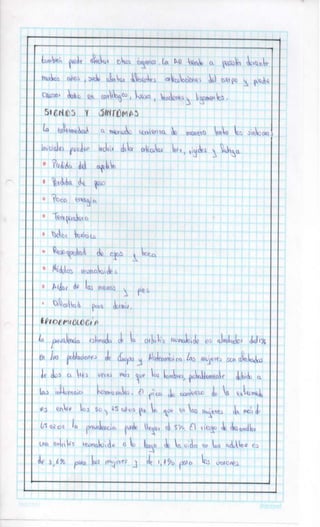 también puede afectar otros órganos. La AR tiende a persistir durante
muchos años, suele afectar diferentes articulaciones del cuerpo y puede
causar daño en cartílago, huesos, tendones y ligamentos.
SIGNOS Y SINTOMAS
La enfermedad a menudo comienza de manera lenta los síntomas
iniciales pueden incluir dolor articular leve, rigidez y fatiga
Perdida del apetito
Perdida de peso
Poca energía
Temperatura
Dolor torácico
Resequedad de ojos y boca
Nódulos reumatoides
Ardor de las manos y pies
Dificultad para dormir.
EPIDEMIOLOGIA
La prevalencia estimada de la artritis reumatoide es alrededor del 1%
en las poblaciones de Europa y Norteamérica. Las mujeres son afectadas
de dos a tres veces más que los hombres, probablemente debido a
las influencias hormonales. El pico de comienzo de la enfermedad
es entre los 30 y 55 años por lo que en las mujeres de más de
65 años la prevalencia puede llegar al 5%. El riesgo de desarrollar
una artritis reumatoide a lo largo de la vida en los adultos es
de 3,6% para las mujeres y de 1,7% para los varones.